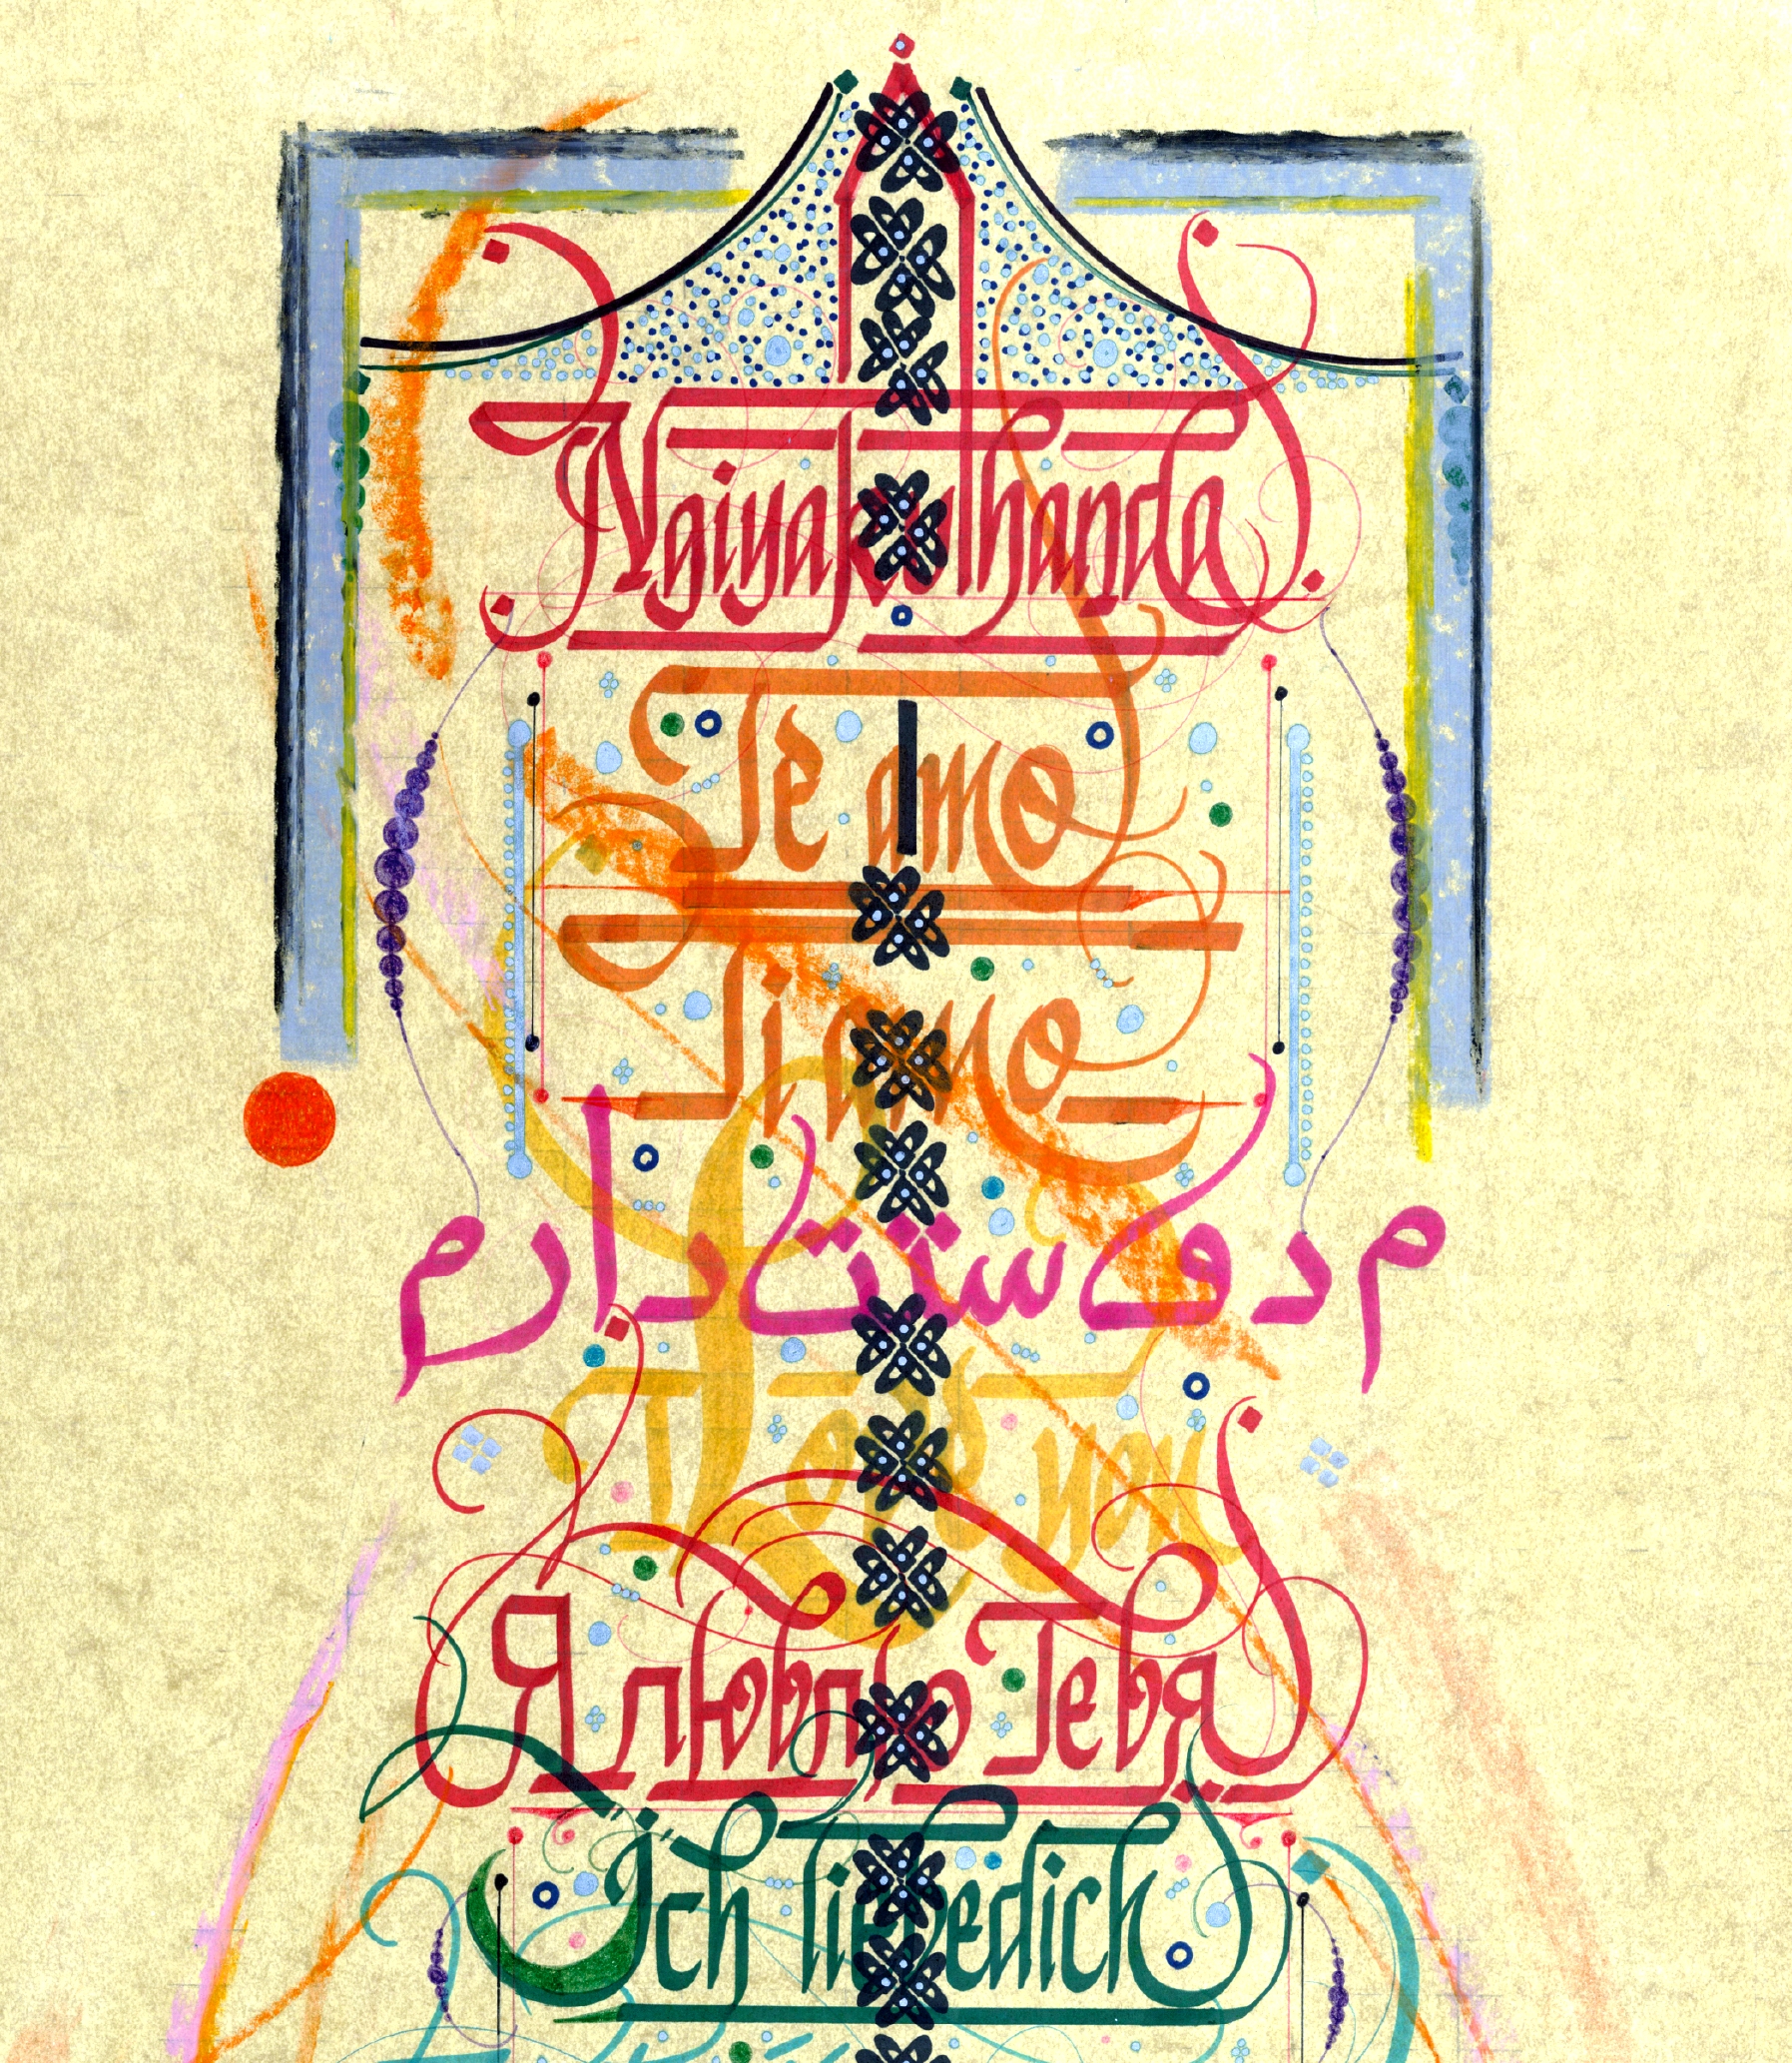 Ngiyakuthanda
Te amo
Ti amo
م دوستت دارم
I love you
Я люблю Тебя
Ich liebe dich